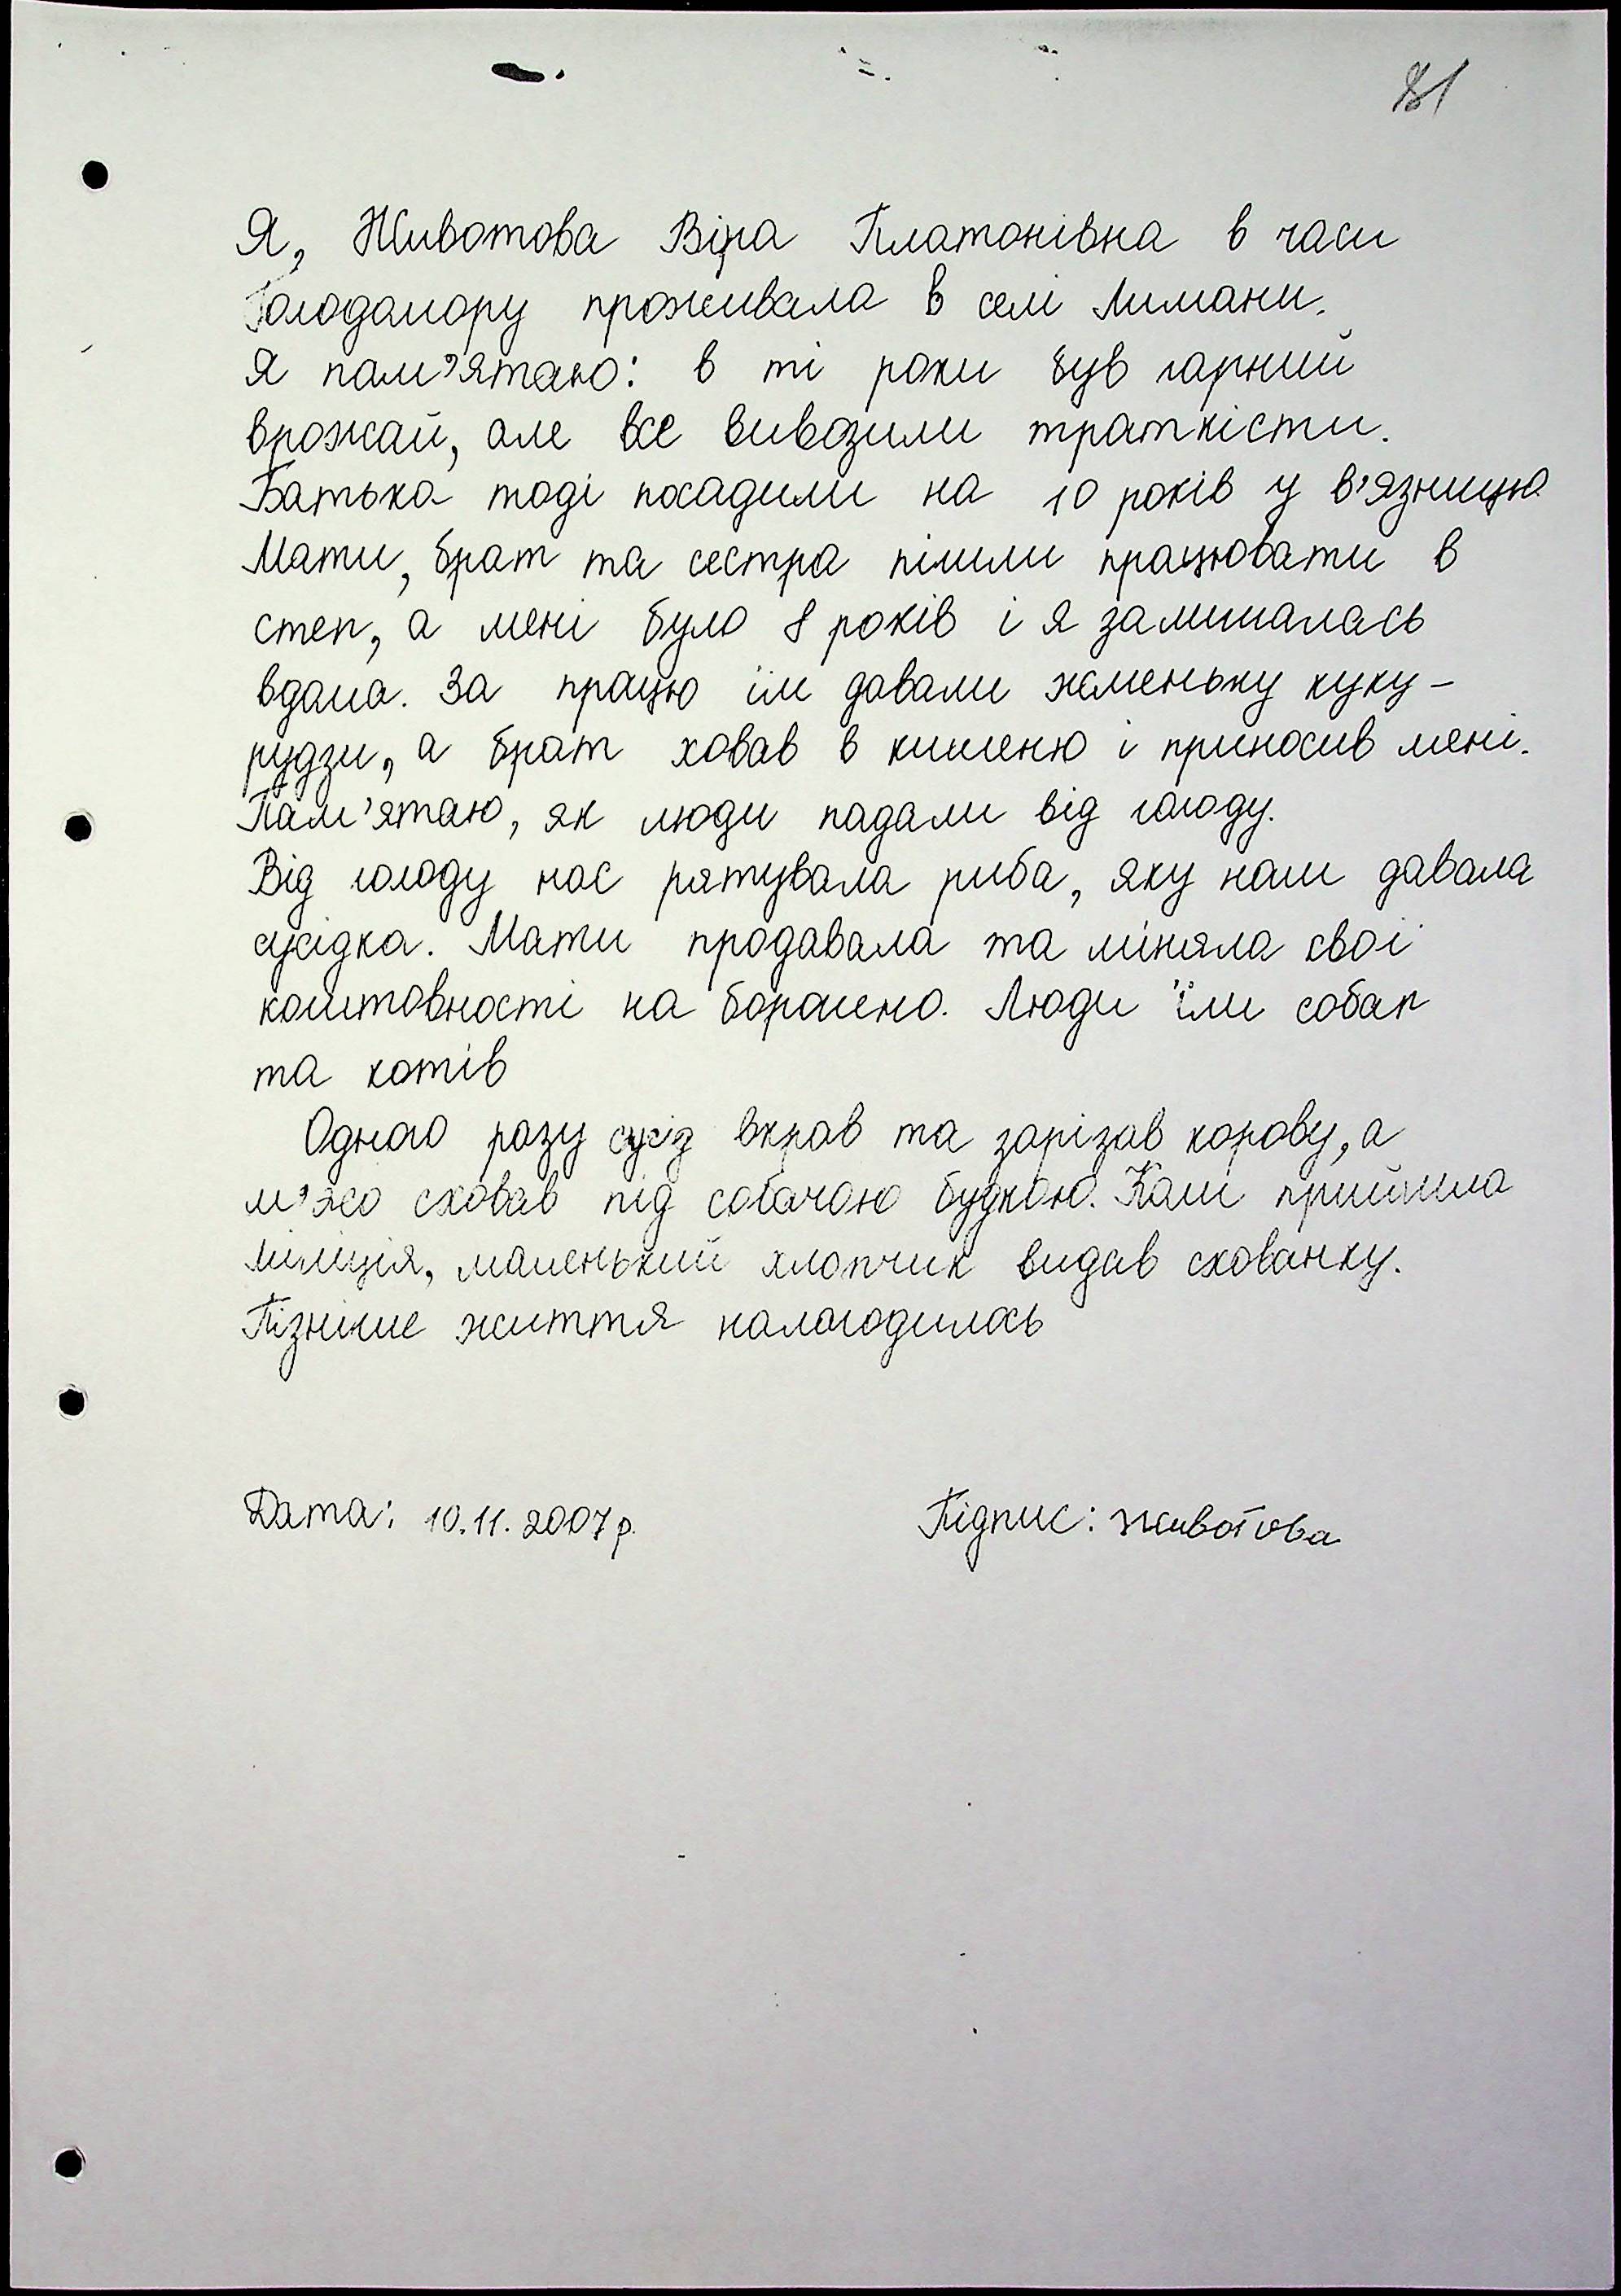 81
Я, Животова Віра Платонівна в часи
Голодомору проживала в селі Лимани.
Я пам'ятаю: в ті роки був гарний
врожай, але все вивозили траткісти.
Батька тоді посадили на 10 років у в'язницю
Мати, брат та сестра пішли працювати в
степ, а мені було 8 років і я залишалась
вдома. За працю їм давали жменьку куку-
рудзи, а брат ховав в кишеню і приносив мені.
Пам'ятаю, як люди падали від голоду.
Від голоду нас рятувала риба, яку нам давала
сусідка. Мати продавала та міняла свої
коштовності на борошно. Люди їли собак
та котів
Одного разу сусід вкрав та зарізав корову, а
м'ясо сховав під собачою будкою. Коли прийшла
міліція, маленький хлопчик видав схованку.
Пізніше життя налагодилось
Дата: 10.11.2007 р. Підпис: Животова